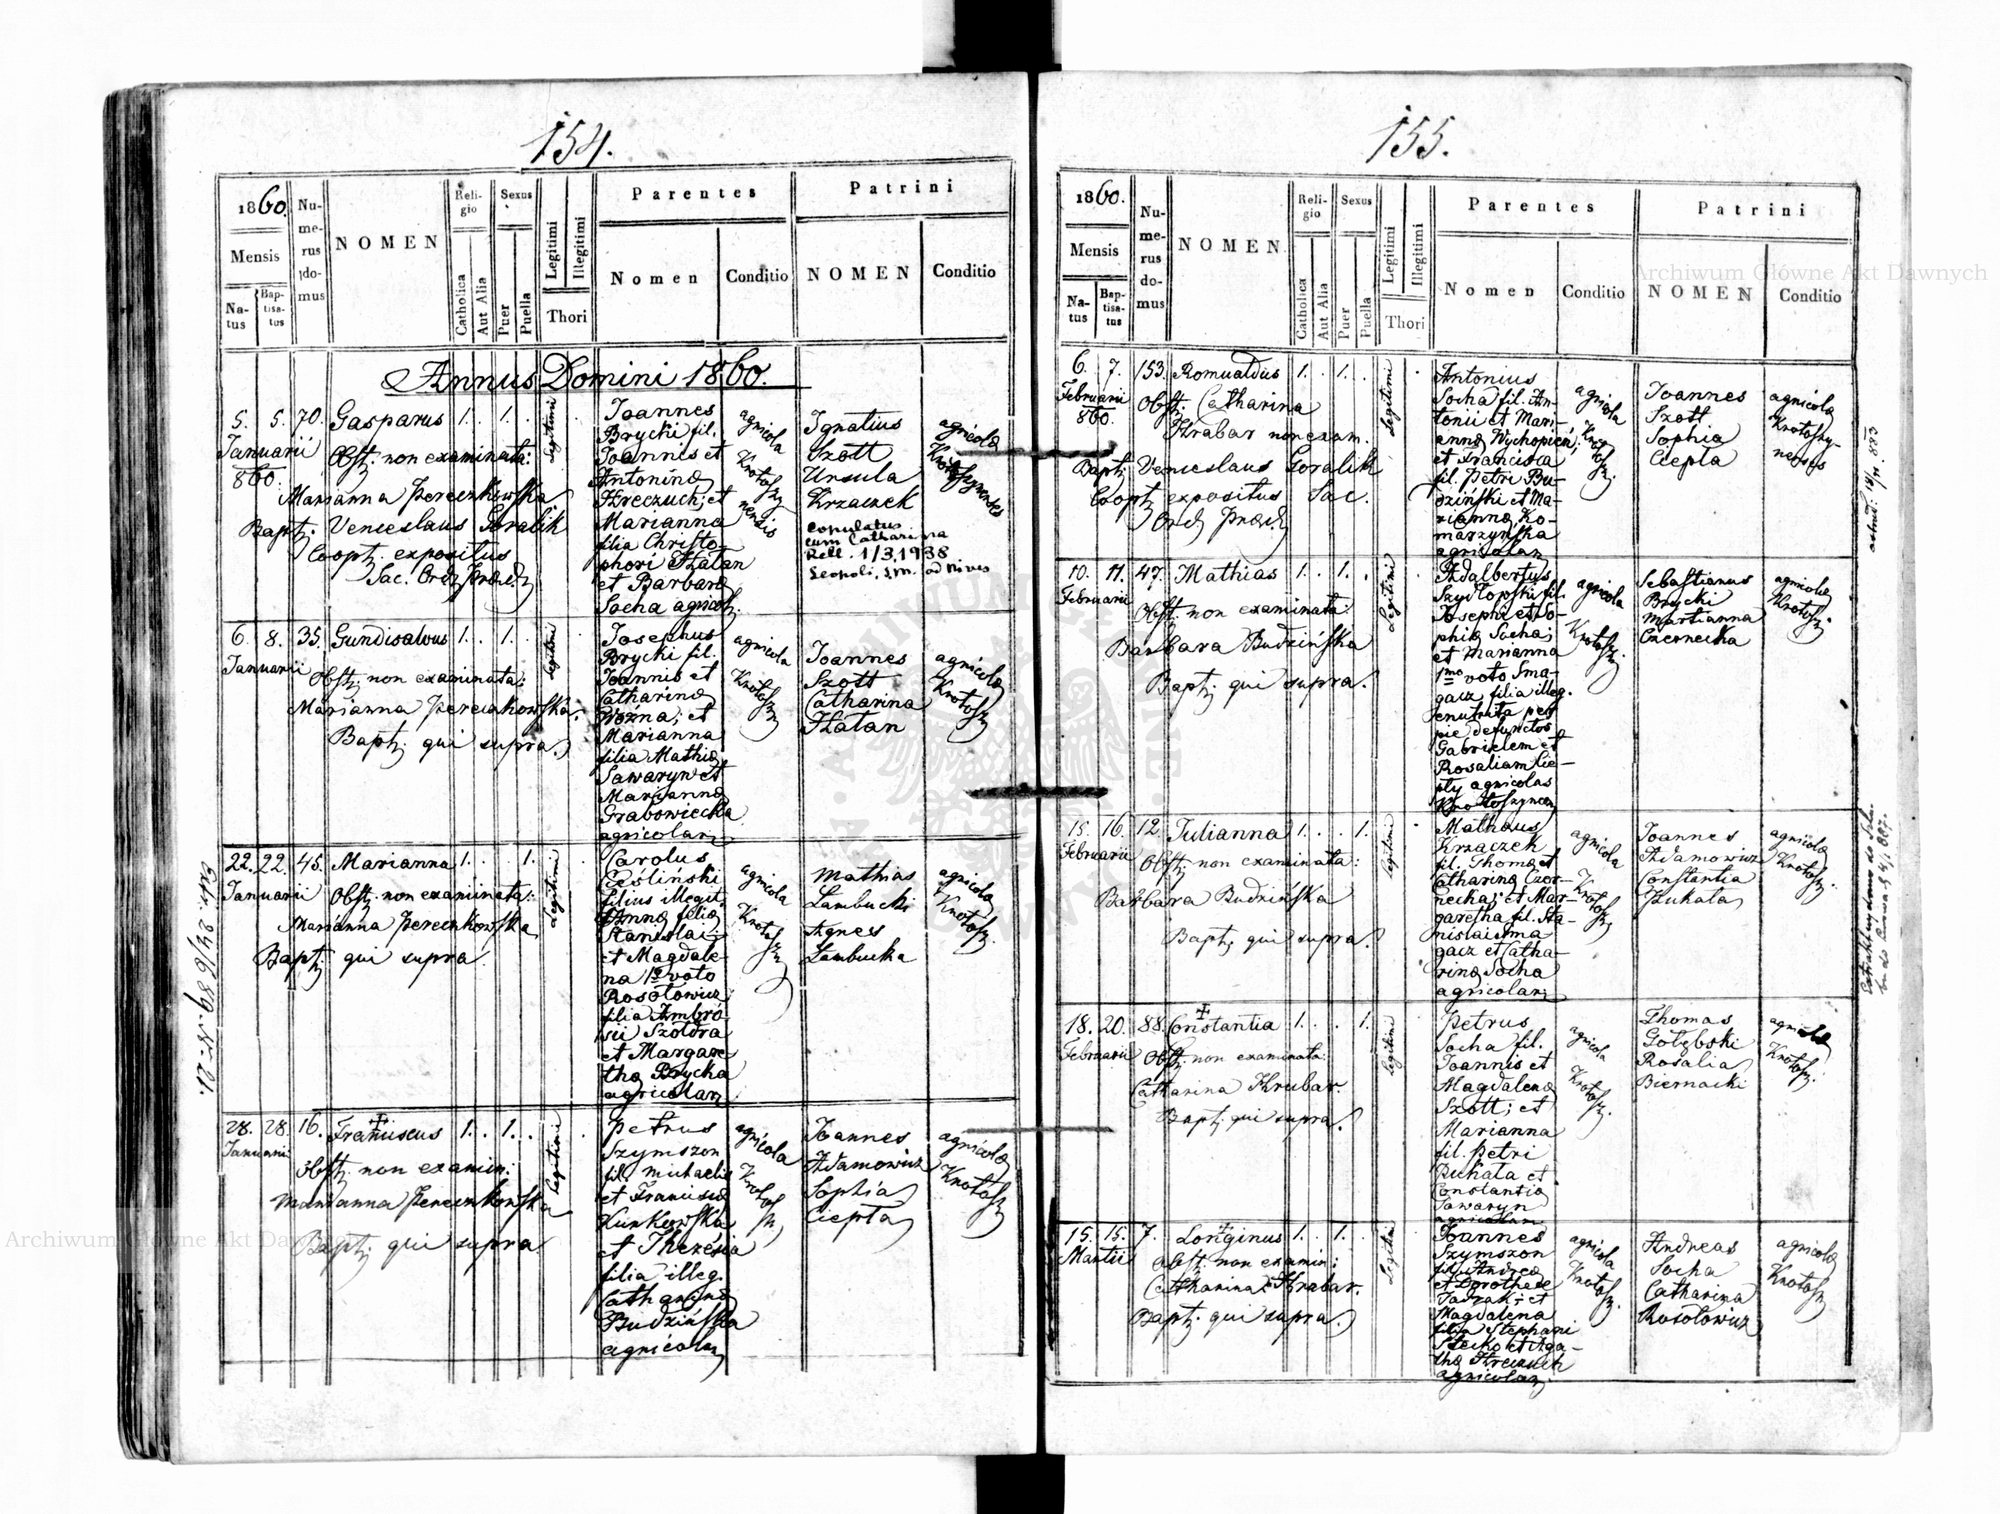 154.
1860.
Mensis
Natus
Baptisatus
Numerus domus
NOMEN
Religio
Catholica
Aut Alia
Sexus
Puer
Puella
Legitimi
Illegitimi
Thori
Parentes
Nomen
Conditio
Patrini
NOMEN
Conditio
Annus Domini 1860.
5. 5. 70. Gasparus 1. . 1. .
Januarii
860.
Obst: non examinata:
Marianna Pereczkowska
Bapt: Venceslaus Goralik
Coopt: expositus
Sac. Ord: Praed:
Legitimi
Joannes
Brycki fil.
Joannis et
Antonina
Hreczuch; et
Marianna
filia Christo-
phori Hatan
et Barbara
Socha agricol:
agricola
Krotosz
nensis
Ignatius
Szott
Ursula
Krzaczek
agricolae
Krotoszynenses
copulatus
cum Catharina
Rell. 1/3.1938
Leopoli, S.M. ad Nives
6. 8. 35. Gundisalvus 1. . 1. .
Januarii
Obst: non examinata:
Marianna Pereczkowska.
Bapt: qui supra.
Legitimi
Josephus
Brycki fil.
Joannis et
Catharina
Woźna; et
Marianna
filia Mathia
Sawaryn et
Marianna
Grabowiecka
agricolar:
agricola
Krotosz
Joannes
Szott
Catharina
Hatan
agricolae
Krotosz
22. 22. 45. Marianna 1. . . 1.
Januarii
Obst: non examinata:
Marianna Pereczkowska
Bapt: qui supra
Legitimi
Carolus
Cieśliński
filius illegit.
Anna filia
Stanislai;
et Magdale-
na 1º voto
Rosołowicz
filia Ambro-
sii Szołdra
et Margare-
tha Brycka
agricolar:
agricola
Krotosz
Mathias
Łambucki
Agnes
Łambucka
agricolae
Krotosz.
28. 28. 16. Franciscus 1. . 1. .
Januarii
Obst: non examin:
Marianna Pereczkowska
Bapt: qui supra
Legitimi
Petrus
Szymszon
fil. Michaelis
et Francisca
Kunkowska
et Theresia
filia illeg.
Catharina
Budzińska
agricolar:
agricola
Krotosz
Joannes
Adamowicz
Sophia
Ciepta
agricolae
Krotosz
155.
1860.
Mensis
Natus
Baptisatus
Numerus domus
NOMEN
Religio
Catholica
Aut Alia
Sexus
Puer
Puella
Legitimi
Illegitimi
Thori
Parentes
Nomen
Conditio
Patrini
NOMEN
Conditio
6. 7. 153. Romualdus 1. . 1. .
Februarii
860.
Obst: Catharina
Hrabar non exam.
Bapt: Venceslaus Goralik
Coopt: expositus Sac.
Ord: Praed:
Legitimi
Antonius
Socha fil. An-
tonii et Mari-
anna Wychopień;
et Francisca
fil. Petri Bu-
dziński et Ma-
rianna Ko-
marzyńska
agricolar:
agricola
Krotosz.
Joannes
Szott
Sophia
Ciepta
agricolae
Krotoszy-
nenses
10. 11. 47. Mathias 1. . 1. .
Februarii
Obst: non examinata
Barbara Budzińska
Bapt: qui supra.
Legitimi
Adalbertus
Szydłopski fil.
Josephi et So-
phia Socha;
et Marianna
1mo voto Sma-
gacz filia illeg.
enutrita per
pie defunctos
Gabrielem et
Rosaliam Cie-
pty agricolas
Krotoszynen
agricola
Krotosz.
Sebastianus
Brycki
Martianna
Czernecka
agricolae
Krotosz.
15. 16. 12. Julianna 1. . . 1.
Februarii
Obst: non examinata:
Barbara Budzińska
Bapt: qui supra.
Legitimi
Mathaus
Krzaczek
fil. Thoma et
Catharina Czer-
necka; et Mar-
garetha fil. Sta-
nislai Sma-
gacz et Catha-
rina Socha
agricolar:
agricola
Krotosz
Joannes
Adamowicz
Constantia
Pukata
agricolae
Krotosz.
18. 20. 88. Constantia 1. . . 1.
Februarii
Obst: non examinata:
Catharina Hrubar.
Bapt: qui supra.
Legitimi
Petrus
Socha fil.
Joannis et
Magdalena
Szott; et
Marianna
fil. Petri
Pukata et
Constantia
Sawaryn
agricolar:
agricola
Krotosz.
Thomas
Gołębski
Rosalia
Biernacki
agricolae
Krotosz.
15. 15. 7. Longinus 1. . 1. .
Martii
Obst: non examin:
Catharina Hrabar.
Bapt: qui supra.
Legitimi
Joannes
Szymszon
fil. Andrea
et Dorotheae
Jadrak; et
Magdalena
filia Stephani
Stecko et Aga-
tha Hreczuch
agricolar:
agricola
Krotosz.
Andreas
Socha
Catharina
Rosołowicz
agricolae
Krotosz
Archiwum Główne Akt Dawnych
Archiwum Główne Akt Dawnych